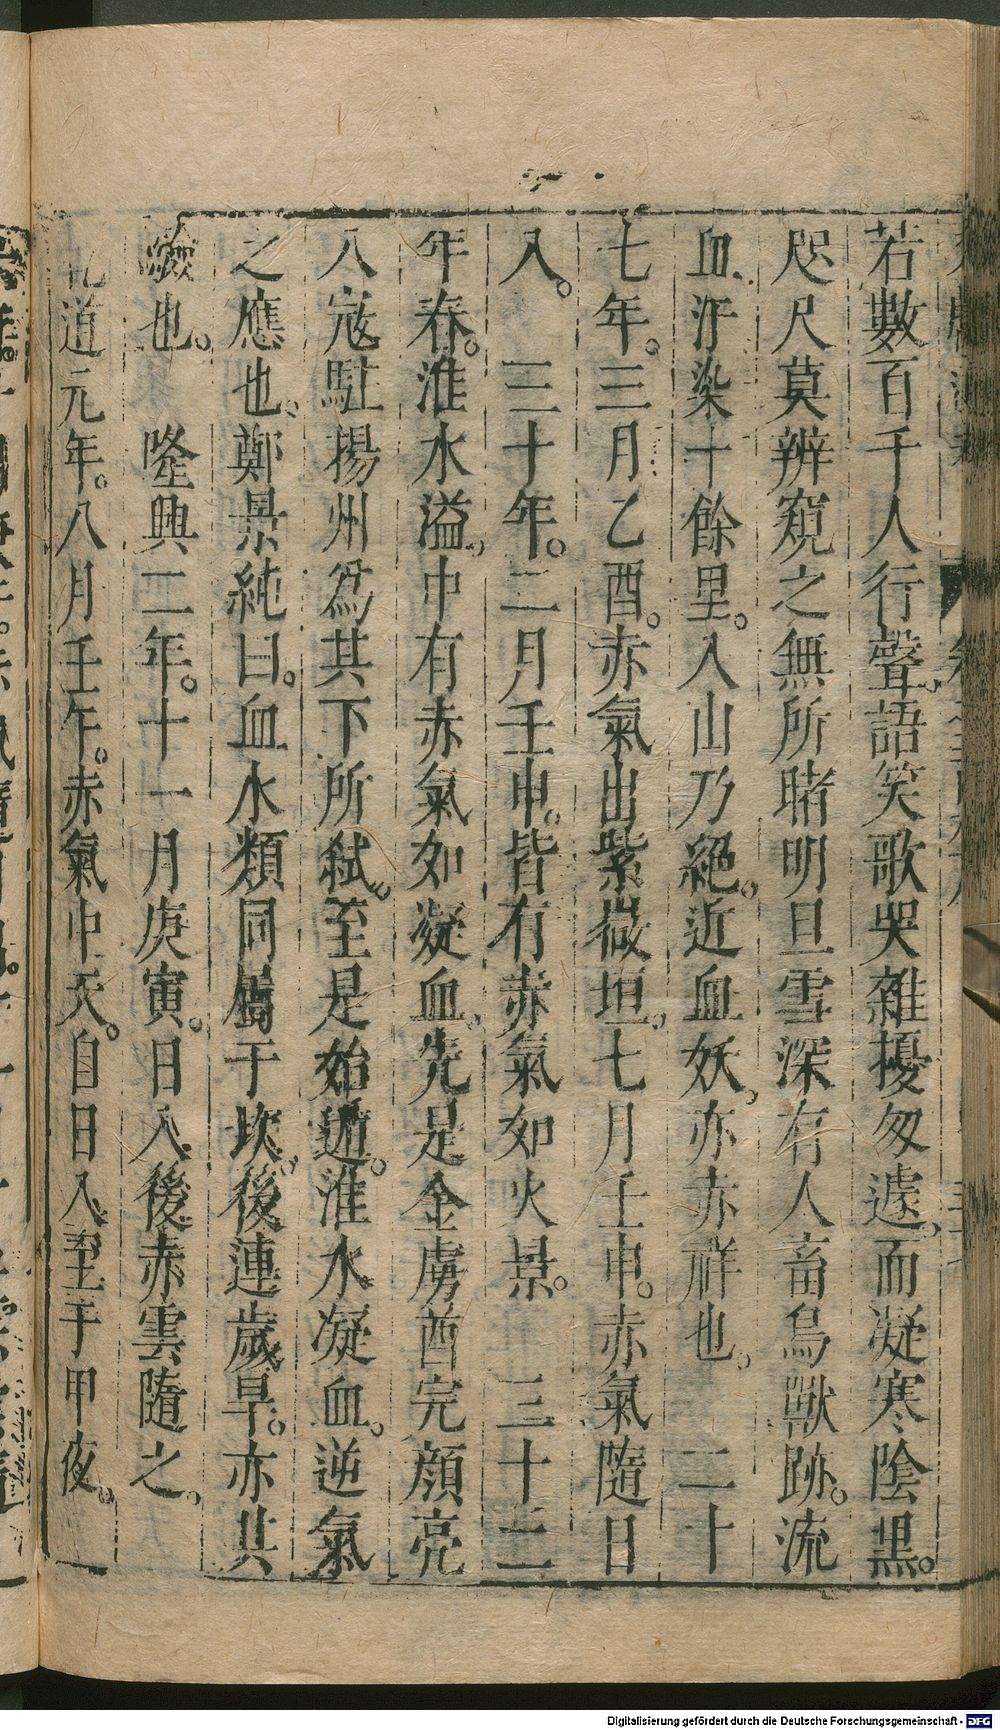 若數百千人行聲。語笑歌哭雜擾匆遽。而凝寒陰黑。
咫尺莫辨窺之無所睹明旦雪深有人畜鳥獸跡。流
血汙染十餘里。入山乃絕。近血妖。亦赤祥也。　二十
七年。三月乙酉。赤氣出紫微垣。七月壬申。赤氣隨日
入。　三十年。二月壬申。皆有赤氣如火景。　三十二
年春。淮水溢。中有赤氣如凝血。先是金虜酋完顏亮
入寇駐揚州爲其下所弒。至是始遁。淮水凝血。逆氣
之應也。鄭景純曰。血水類同屬于坎。後連歲旱。亦其
徵也。　隆興二年。十一月庚寅。日入後赤雲隨之。
乾道元年。八月壬午。赤氣中天。自日入至于甲夜。
Digitalisierung gefördert durch die Deutsche Forschungsgemeinschaft - DFG